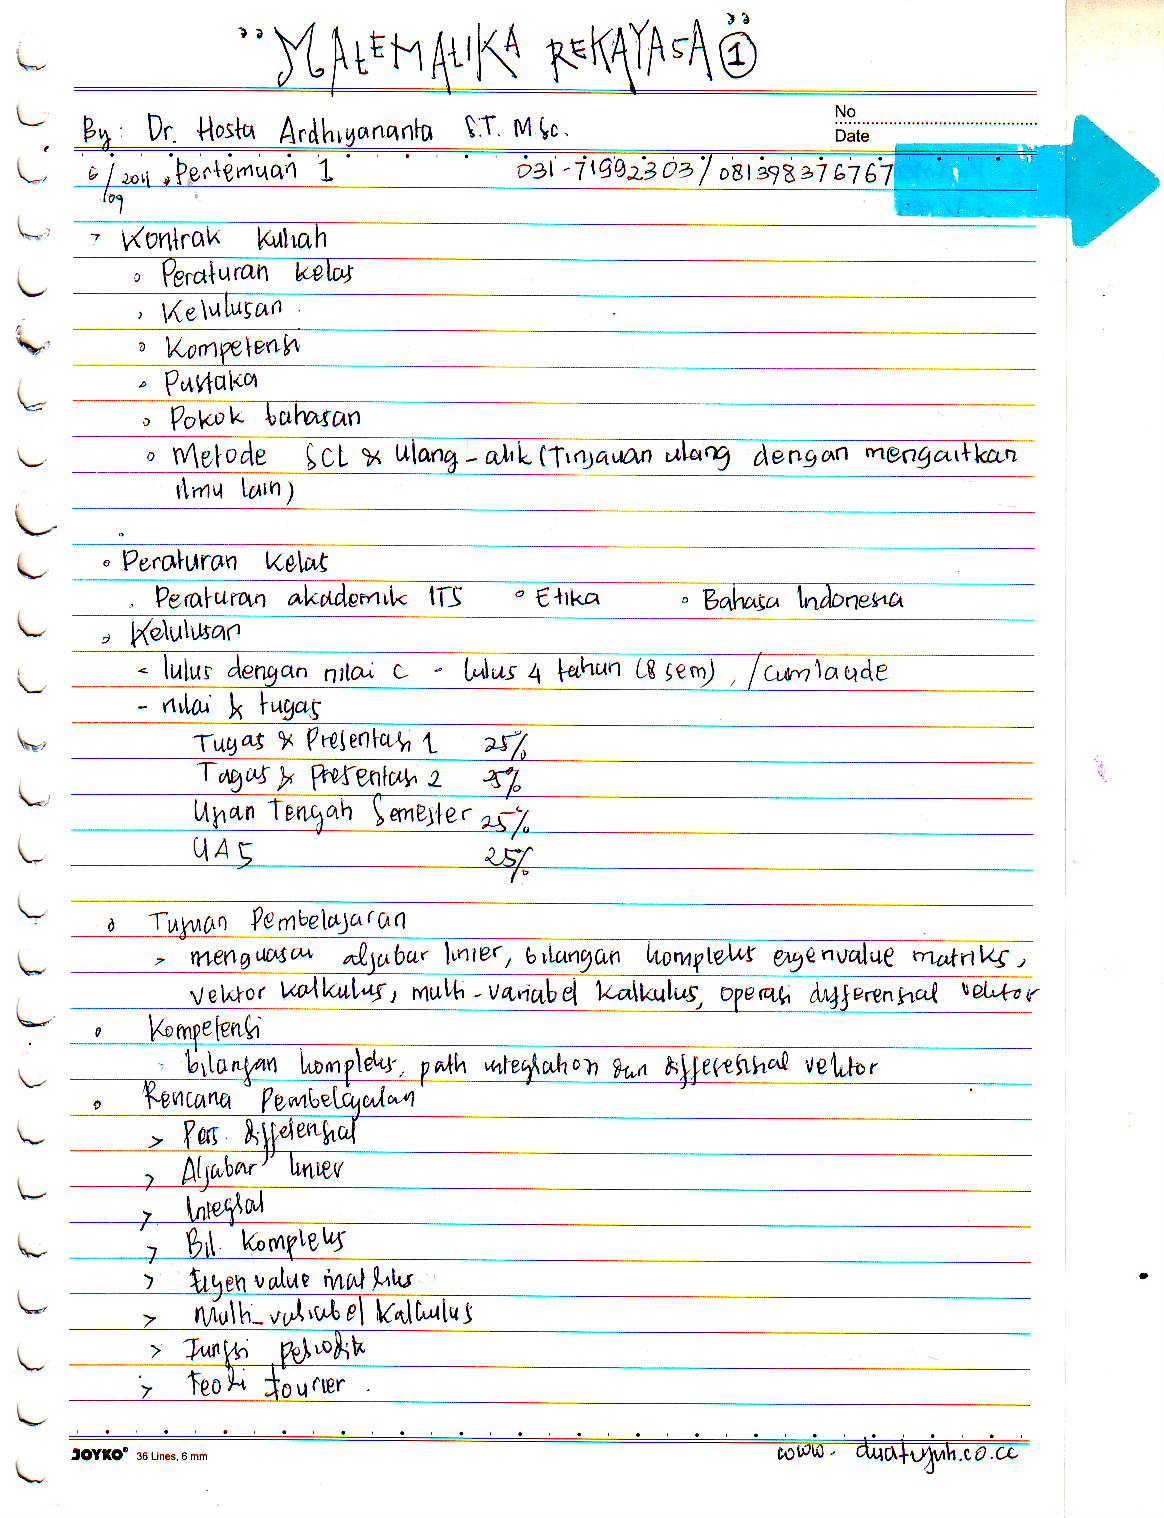 "MATEMATIKA REKAYASA 1"
No
By: Dr. Hosta Ardhiyananta S.T. MSc.
Date
6/09 2011, Pertemuan 1 031-71992303/081398376767
Kontrak Kuliah
Peraturan kelas
Kelulusan
Kompetensi
Pustaka
Pokok bahasan
Metode SCL & Ulang-alik (Tinjauan ulang dengan mengaitkan
ilmu lain)
Peraturan Kelas
Peraturan akademik ITS Etika Bahasa Indonesia
Kelulusan
- lulus dengan nilai C - lulus 4 tahun (8 sem), /cumlaude
- nilai & tugas
Tugas & Presentasi 1 25%
Tugas & Presentasi 2 25%
Ujian Tengah Semester 25%
UAS 25%
Tujuan Pembelajaran
> menguasai aljabar linier, bilangan kompleks eigenvalue matriks,
vektor kalkulus, multi-variabel kalkulus, operasi differensial vektor
Kompetensi
bilangan kompleks, path integration dan differensial vektor
Rencana Pembelajaran
> Pers. differensial
> Aljabar linier
> Integral
> Bil. Kompleks
> Eigen value matriks
> Multi-variabel Kalkulus
> Fungsi Periodik
> Teori Fourier.
JOYKO 36 Lines, 6 mm www.duatujuh.co.cc